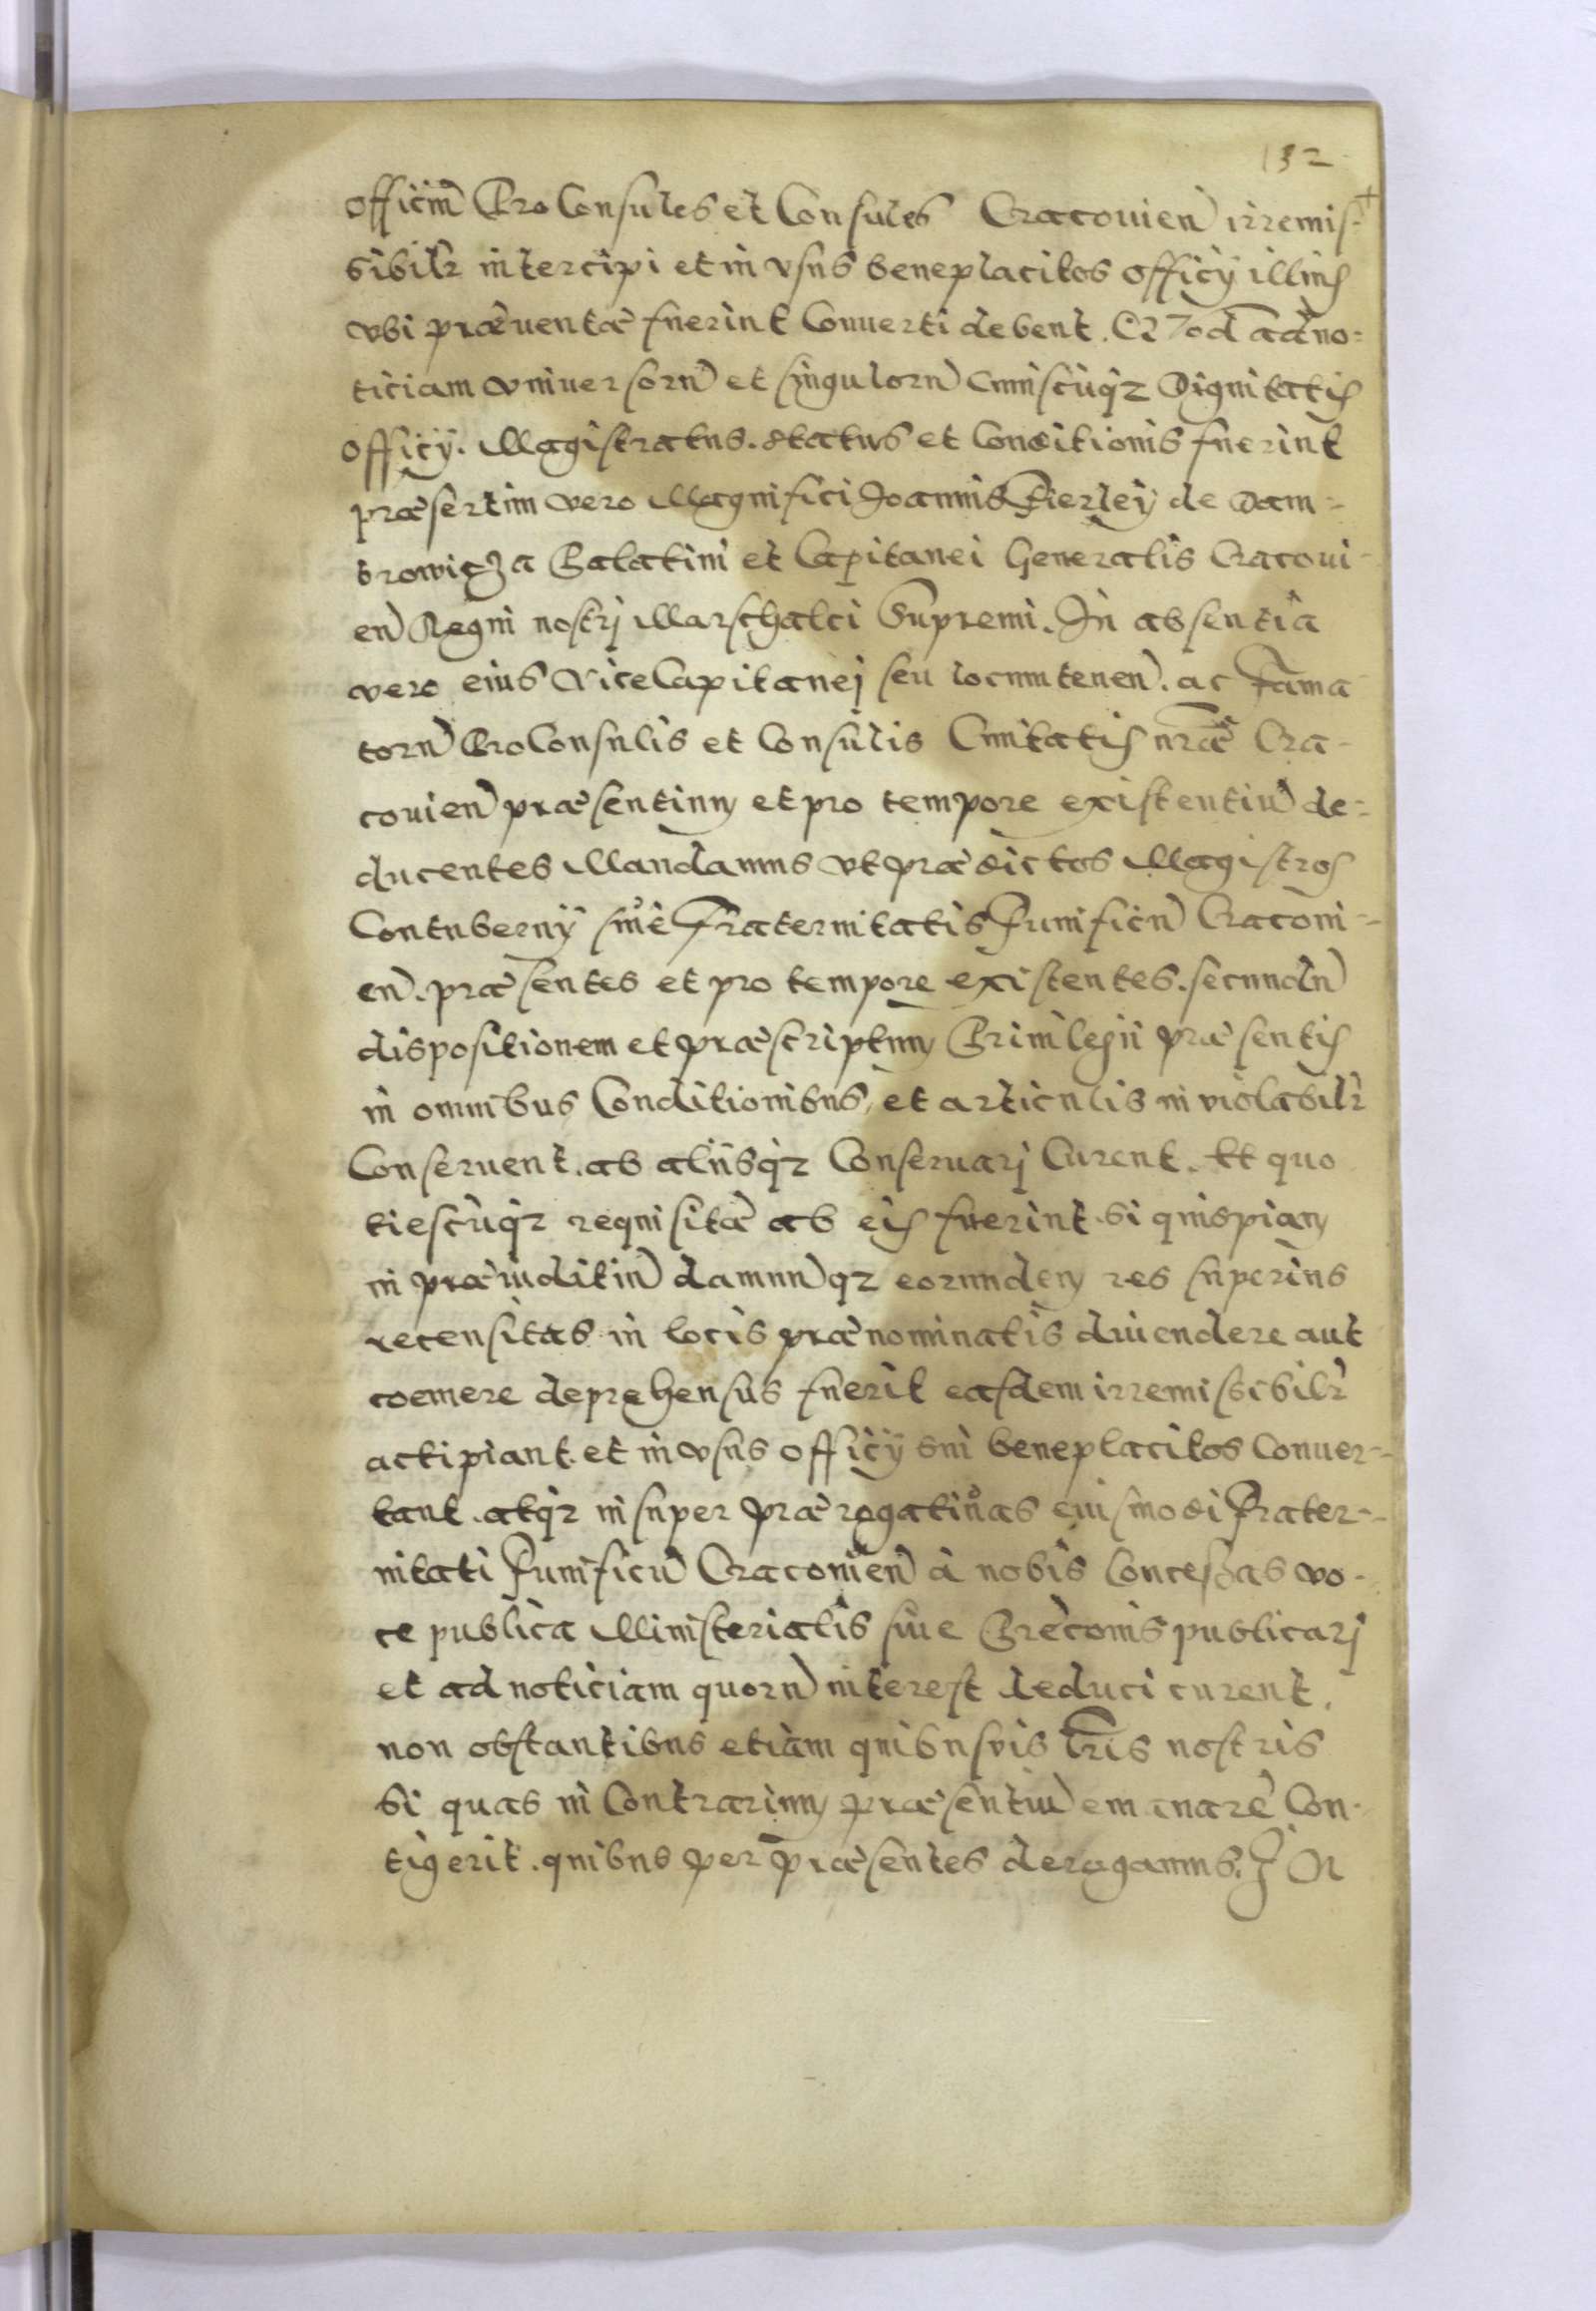 132
officiũ ProConsules et Consules Cracouien̄ irremis=
sibilr̃ intercipi et in vsus beneplacitos officÿ illius
vbi præuentæ fuerint Conuerti debent. Quod ad no=
ticiam vniuersorũ et singulorũ Cuiuscũqz Dignitatis
officÿ. Magistratus. status et Conditionis fuerint
præsertim vero Magnifici Joannis Fierleÿ de Dam=
browicza Palatini et Capitanei Generalis Cracoui-
en̄ Regni nostrj Marschalci Supremi. In absentia
vero eius ViceCapitanej seu locumtenen̄. ac Fama
torũ ProConsulis et Consulis Ciuitatis nr̃æ Cra-
couien̄ præsentium et pro tempore existentiũ de=
ducentes Mandamus vt prædictos Magistros
Contubernÿ siue Fraternitatis Funificũ Cracoui=
en̄. præsentes et pro tempore existentes. secundũ
dispositionem et præscriptum Priuilegii præsentis
in omnibus Conditionibus, et articulis inviolabilr̃
Conseruent. ab aliisqz Conseruarj Curent. Et quo
tiescũqz requisitæ ab eis fuerint. si quispiam
in præiuditiũ damnũqz eorundem res superius
recensitas in locis prænominatis diuendere aut
coemere deprehensus fuerit easdem irremissibilr̃
accipiant. et in vsus officÿ sui beneplacitos Conuer=
tant. atqz insuper prærogatiuas eiusmodi Frater=
nitati Funificũ Cracouien̄ à nobis Concessas vo-
ce publica Ministerialis siue Præconis publicarj
et ad noticiam quorũ interest deduci curent.
non obstantibus etiam quibusvis lr̃is nostris
si quas in Contrarium præsentiũ emanare Con-
tigerit. quibus per præsentes derogamus. In